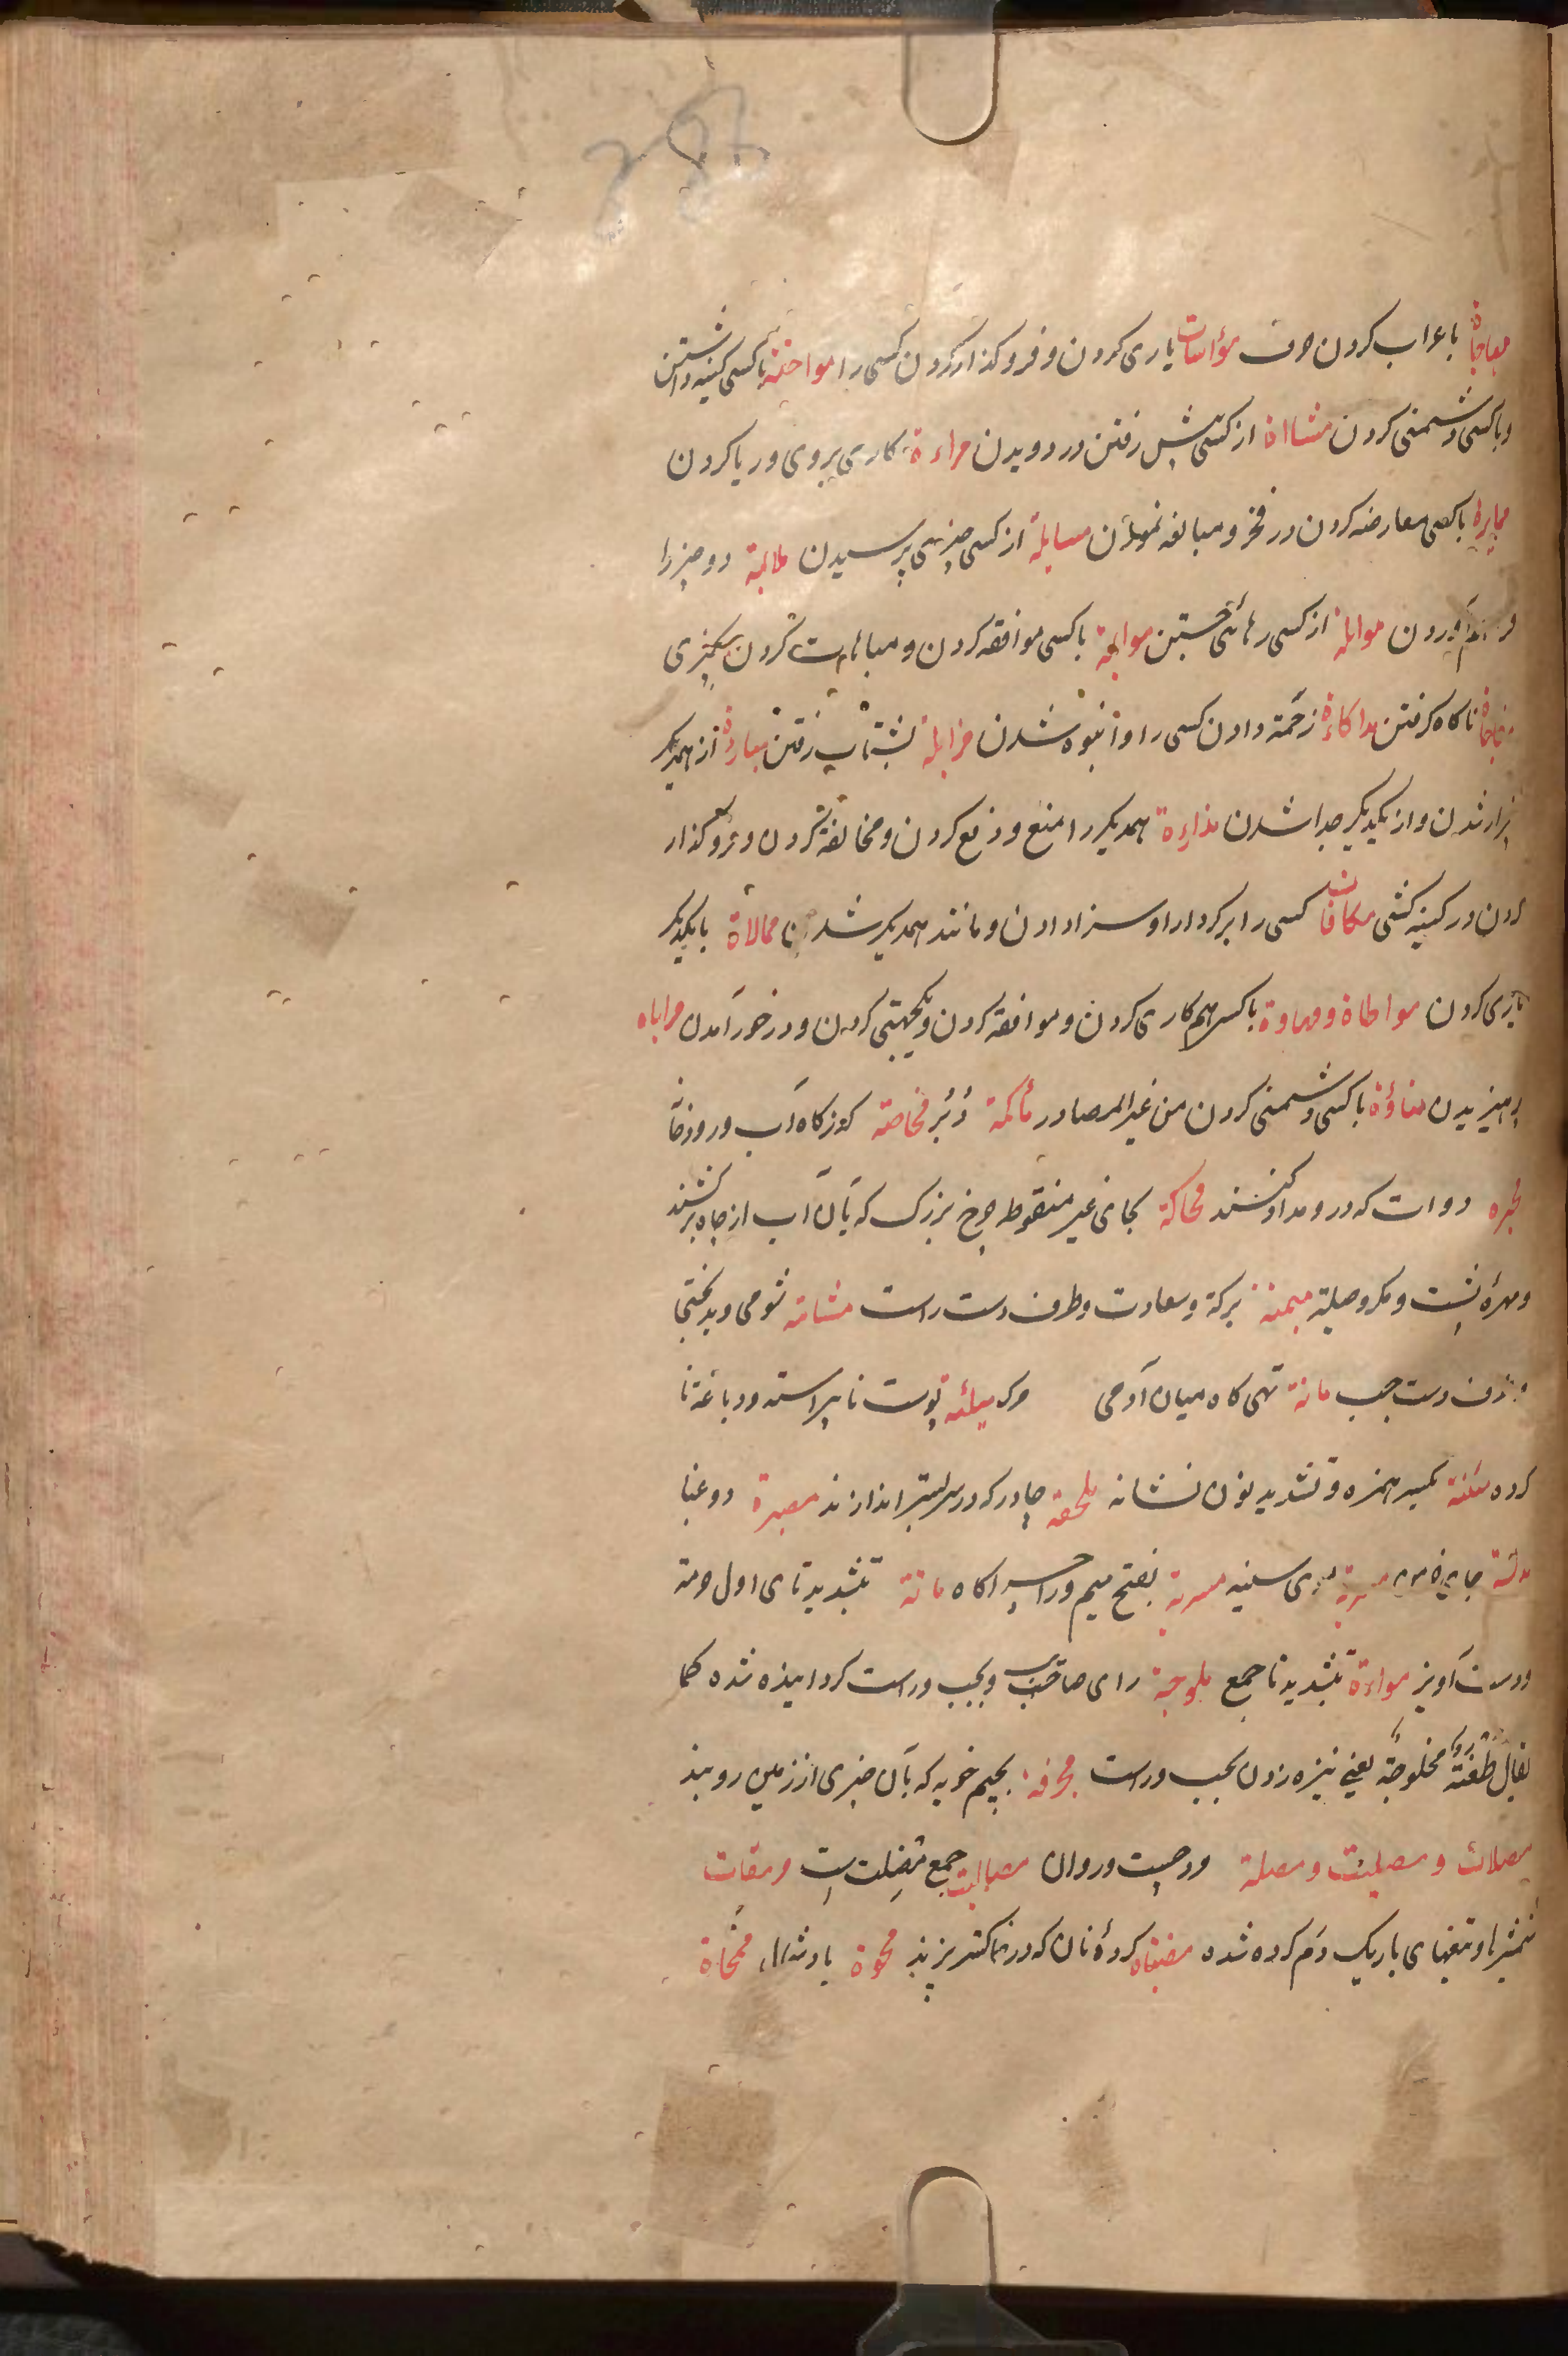 باعراب کردن حرف مؤاسات یاری کردن و فروکذار کردن کسی را مواحنة باکسی کینه داشتن
وباکسی دشمنی کردن مشااة از کسی پیش رفتن در دویدن مراءة کاری بروی وریا کردن
باکسی معارضه کردن در فخر و مبالغه نمودن مسایلة از کسی چیزی پرسیدن ملائمة دو چیز را
فراهم آوردن موایلة از کسی رهائی جستن موایمة باکسی موافقه کردن و مباهات کردن بچیزی
مفاجاة ناکاه کرفتن مداکاءة زحمة دادن کسی را و انبوه شدن مزایلة بشتاب رفتن مبارءة از همدیکر
بیزار شدن و از یکدیکر جدا شدن مدارءة همدیکر را منع و دفع کردن و مخالفة کردن و فروکذار
کردن در کینه کشی مکافات کسی را بر کردار او سزا دادن و مانند همدیکر شدن ممالاة بایکدیکر
یاری کردن مواطاة باکسی هم کاری کردن و موافقة کردن و یکجهتی کردن و در خور آمدن مراباه
پرهیزیدن مناؤة باکسی دشمنی کردن من غیر المصادر مأکمة دبر مخاضة کذرکاه آب و رودخا
محبره دوات که درو مداد کنند محاکة بحای غیر منقوط چرخ بزرک که بآن آب از چاه برکشند
ومهرهٔ پشت و مکر و حیلة میمنة برکة و سعادت و طرف دست راست مشامة شومی و بدبختی
وطرف دست چپ مانة تهی کاه میان آدمی وکر میلئه پوست ناپیراسته ودباغة نا
کرده مئنة بکسر همزه و تشدید نون نشانه ملحفة چادر که در سر بستر اندازند
موی سینه مسربة بفتح میم و را چراکاه ماتة بتشدید تای اول حرمة
ودست آویز مواءة بتشدید تا جمع ملوجة رای صاحب وبچپ و راست کردانیده شده کما
یقال طعنة مخلوجة یعنی نیزه زدن بچپ و راست مجرفة بجیم خوبه که بآن چیزی از زمین روبند
مصلات و مصلیت و مصلة ودچست وروان مصالیت جمع مصلت است مرمقات
شمشیرها و تیغهای باریک دم کرده شده مضباه کردهٔ نان که در خاکستر پزند محوة باد شمال ممحاة